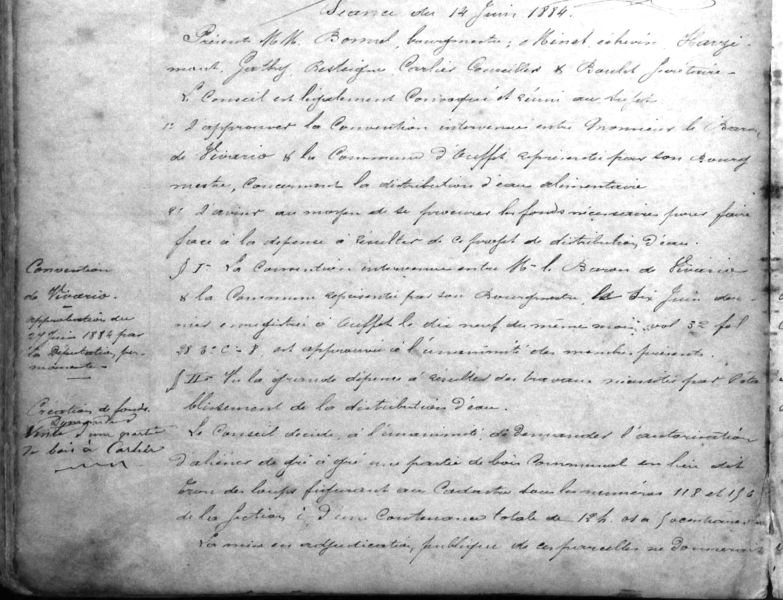 Séance du 14 Juin 1884.
Présents M.M. Bonmel, bourgmestre; Minet, échevin, Harzé-
mont, Gathy, Restaigne Carlier Conseillers & Roulet Secrétaire.
Le Conseil est légalement Convoqué et réuni au sujet
1° D'approuver la Convention intervenue entre Monsieur le Baron
de Vivario & la Commune d'Ouffet représentée par son Bourg-
mestre, Concernant la distribution d'eau alimentaire
2° D'aviser au moyen de se procurer les fonds nécessaires pour faire
face à la dépense à résulter de ce projet de distribution d'eau.
§ I. La Convention intervenue entre Mr le Baron de Vivario
& la Commune représentée par son Bourgmestre, le Six Juin der-
nier enregistrée à Ouffet le dix neuf du même mois, vol 32 fol
28 3° C° 8, est approuvée à l'unanimité des membres présents.
§ II. Vu la grande dépense à résulter des travaux nécessités par l'éta-
blissement de la distribution d'eau.
Le Conseil décide, à l'unanimité, de Demander l'autorisation
D'aliéner de gré à gré une partie de bois Communal en lieu dit
Tron des loups figurant au Cadastre sous les numéros 118 et 156
de la Section C, d'une Contenance totale de
La mise en adjudication publique de ces parcelles ne donnerait
Convention
de Vivario.
approbation du
27 Juin 1884 par
la Députation per-
manente
Création de fonds.
Demande
Vente d'une partie
de bois à Carlier